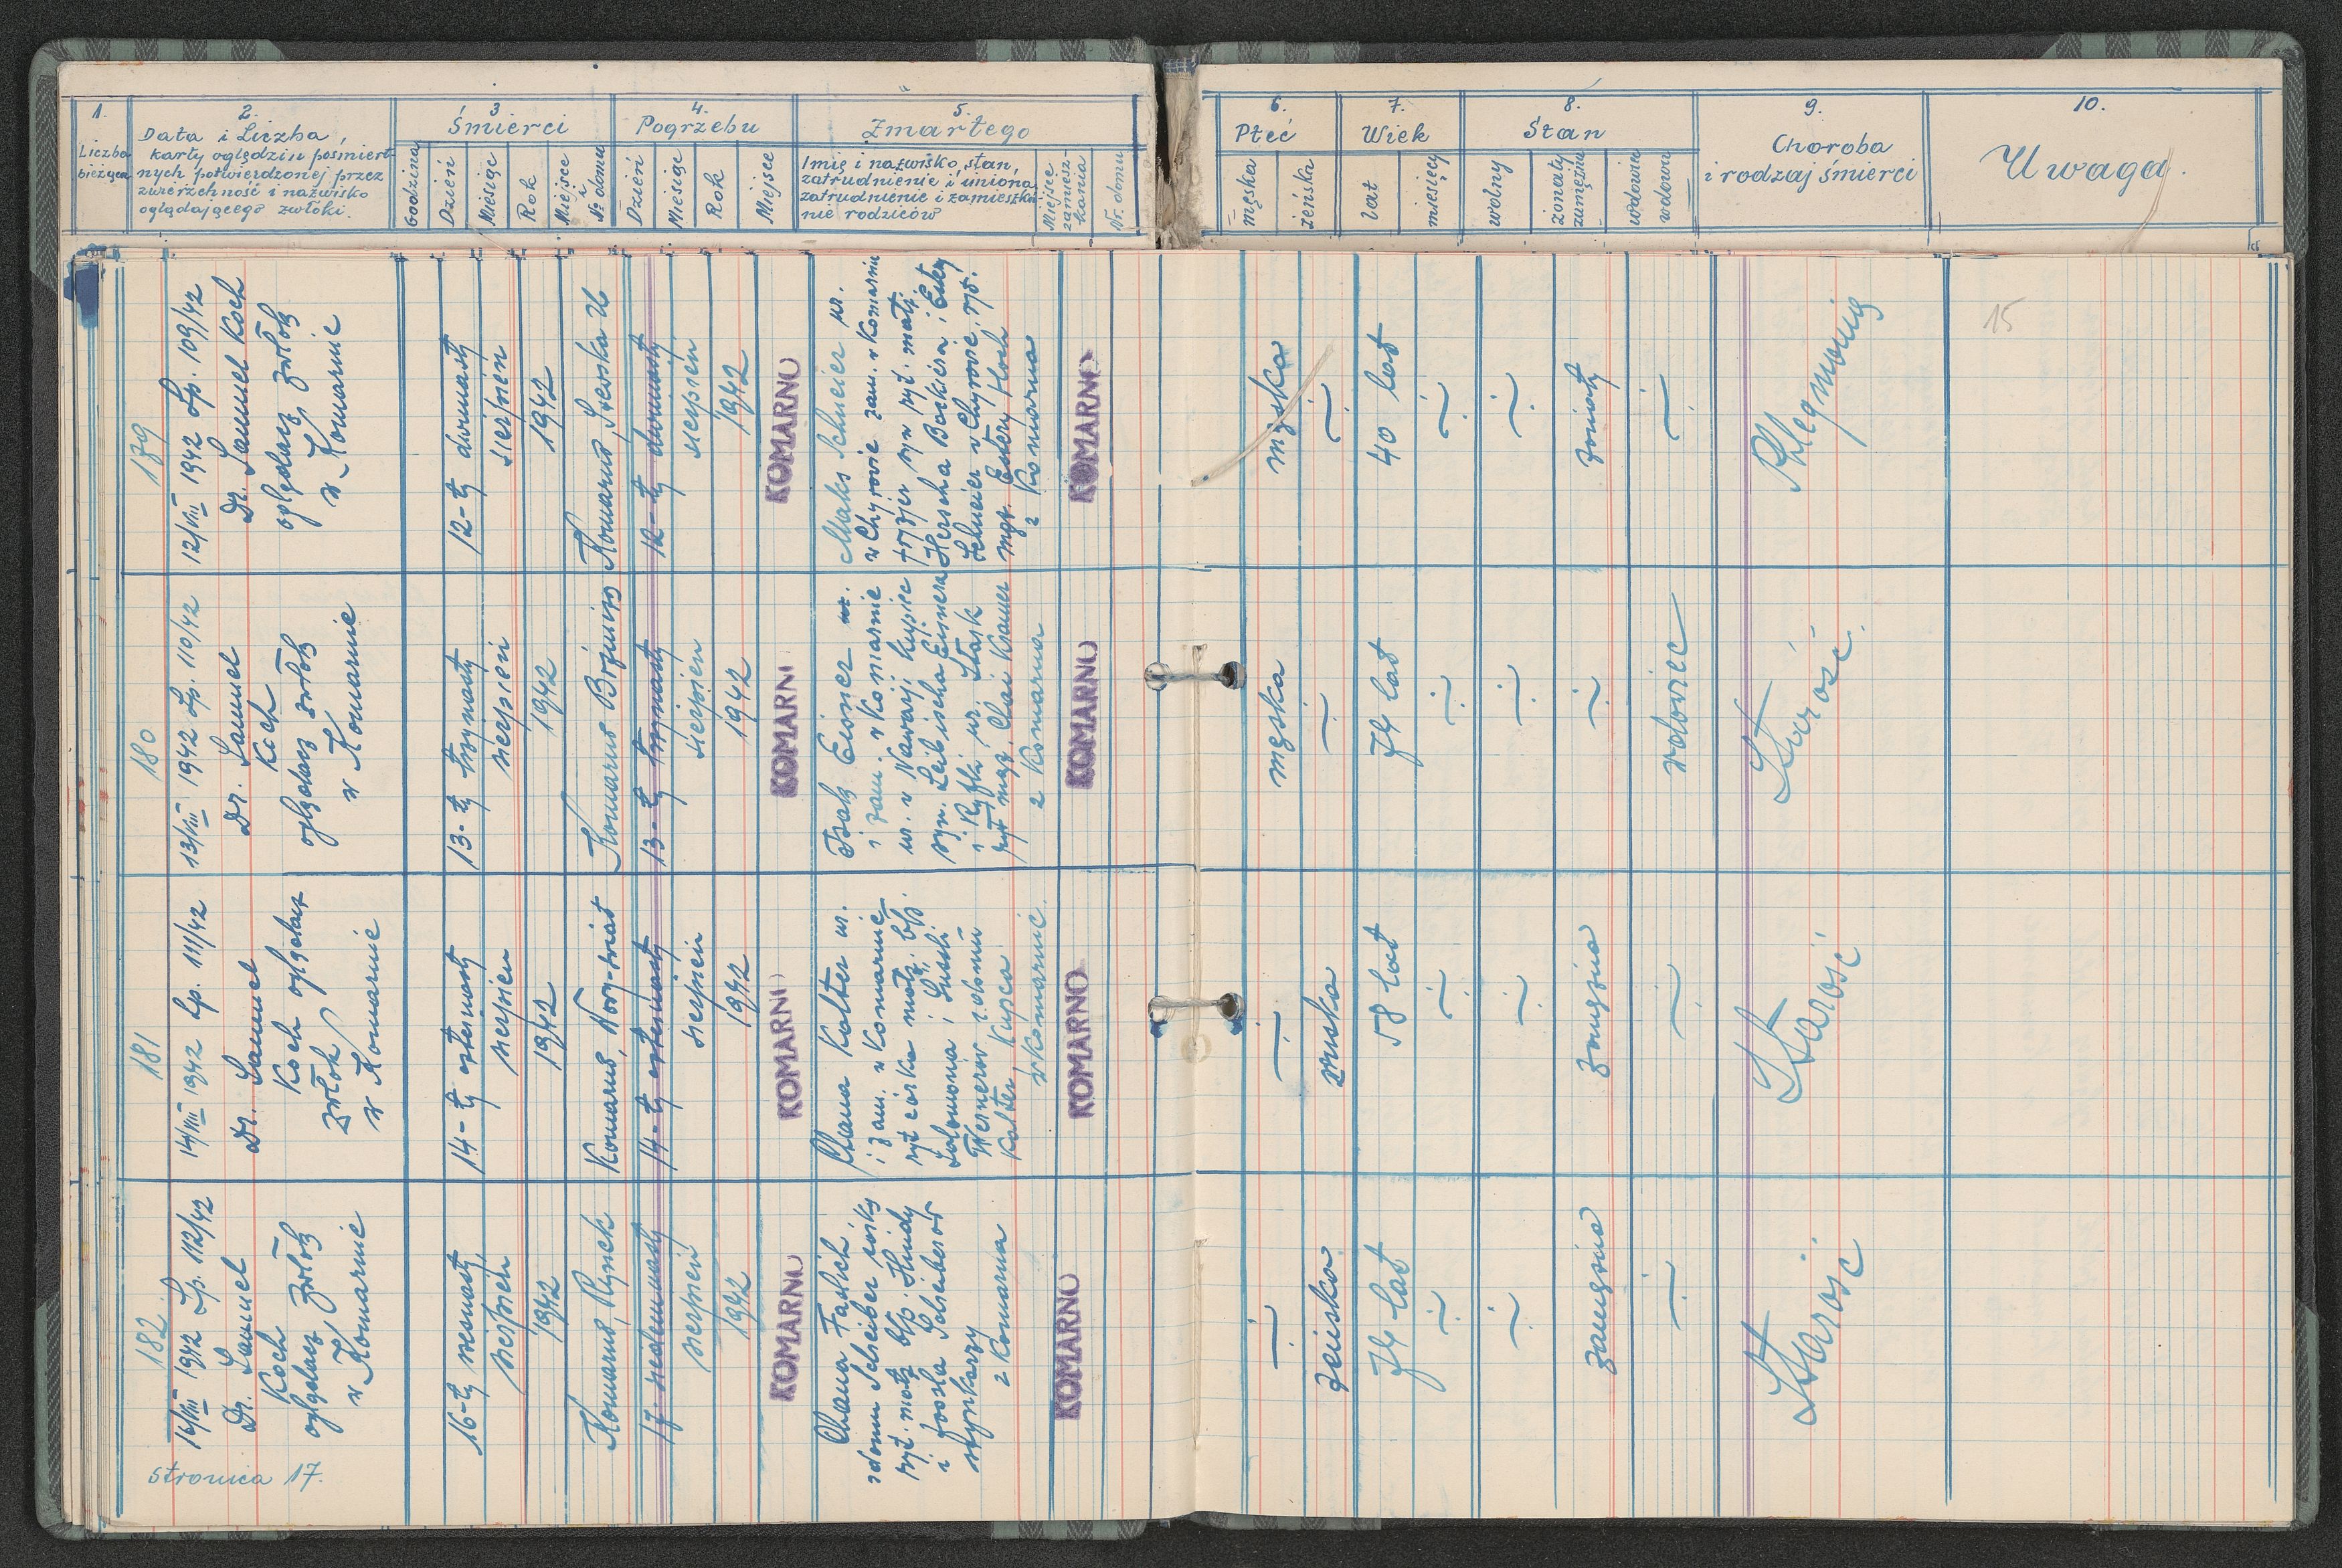 1.
Liczba
bieżąca
2.
Data i Liczba
karty oględzin pośmiert-
nych potwierdzonej przez
zwierzchność i nazwisko
oglądającego zwłoki.
3
Śmierci
Godzina
Dzień
Miesiąc
Rok
Miejsce
i
№ domu
4.
Pogrzebu
Dzień
Miesiąc
Rok
Miejsce
5.
Zmarłego
Imię i nazwisko, stan,
zatrudnienie i imiona,
zatrudnienie i zamieszka-
nie rodziców
Miejsce
zamiesz-
kania
Nr. domu
6.
Płeć
męska
żeńska
7.
Wiek
lat
miesięcy
8.
Stan
wolny
żonaty
zamężna
wdowiec
wdowa
9.
Choroba
i rodzaj śmierci
10.
Uwaga.
15
179
12/VIII 1942 Lp. 109/42
Dr. Samuel Koch
oglądacz zwłok
w Komarnie
12-ty dwunasty
sierpień
1942
Komarno,
12-ty dwunasty
sierpień
1942
KOMARNO
Maks Schneier ur.
w Chyrowie zam. w Komarnie
syn ryt. małż.
Herscha Beckiera i Estery
Schneier w Chyrowie,
Estery Hoch
z Komarna
KOMARNO
męska
40 lat
żonaty
Phlegmonig
180
13/VIII 1942 Lp. 110/42
Dr. Samuel
Koch
oglądacz zwłok
w Komarnie
13-ty trzynasty
sierpień
1942
Komarno
13-ty trzynasty
sierpień
1942
KOMARN
Izak Eisner ur.
i zam. w Komarnie
ur. w Nawarji, kupiec
syn. Leibischa Eisnera
i Ryfki ur. Stark
Chai Kramer
z Komarna
KOMARNO
męska
74 lat
wdowiec
Starość.
181
14/VIII 1942 Lp. 111/42
Dr. Samuel
Koch oglądacz
zwłok
w Komarnie
14-ty czternasty
sierpień
1942
Komarno, Nowy-świat
14-ty czternasty
sierpień
1942
KOMARN
Chana Kalter ur.
i zam. w Komarnie
ryt córka małż. błp.
Salomona i Suski
Wernerów z domu
Kalter, Kupca
w Komarnie.
KOMARNO
żeńska
58 lat
zamężna
Starość
182
16/VIII 1942 Lp. 112/42
Dr. Samuel
Koch
oglądacz zwłok
w Komarnie
16-ty szesnasty
sierpień
1942
Komarno, Rynek
17. siedemnasty
sierpień
1942
KOMARNO
Chana
z domu Schreiber córka
ryt. małż błp. Hindy
i Josla Schreiberów
szynkarzy
z Komarna
KOMARNO
żeńska
74 lat
zamężna
Starość
Stronica 17.